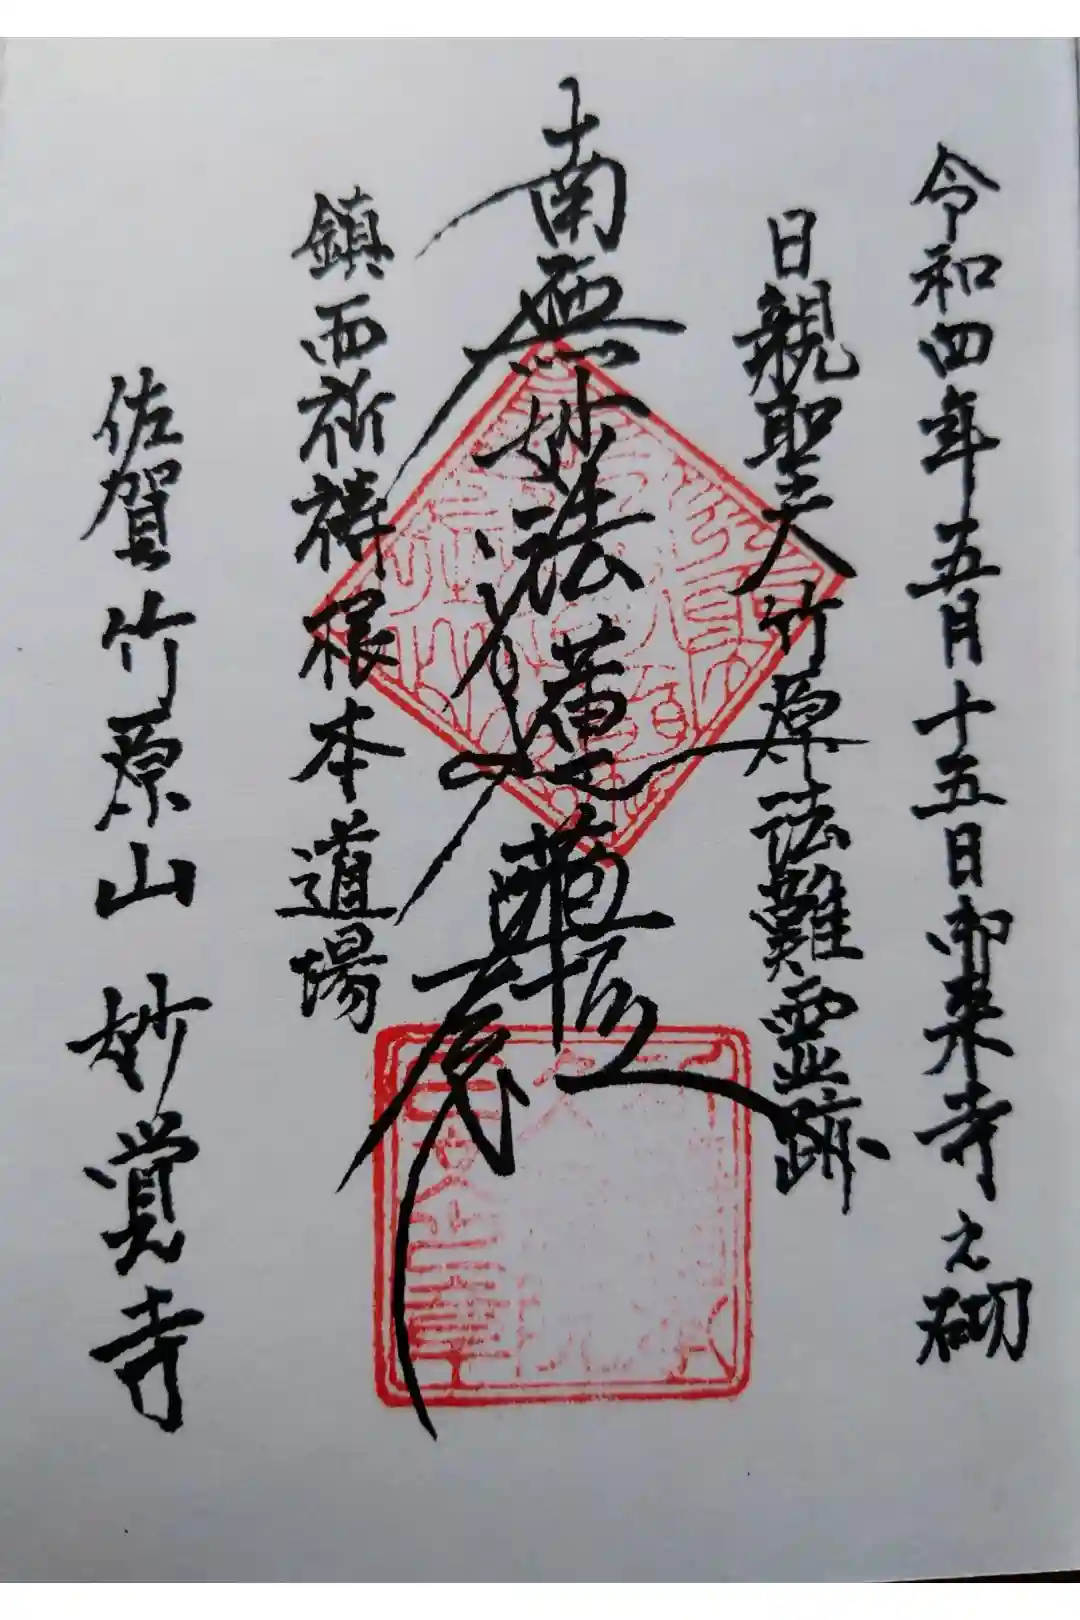 令和四年五月十五日御来寺之砌
日親聖人竹原法難霊跡
南無妙法蓮華経
鎮西祈祷根本道場
佐賀竹原山 妙覚寺